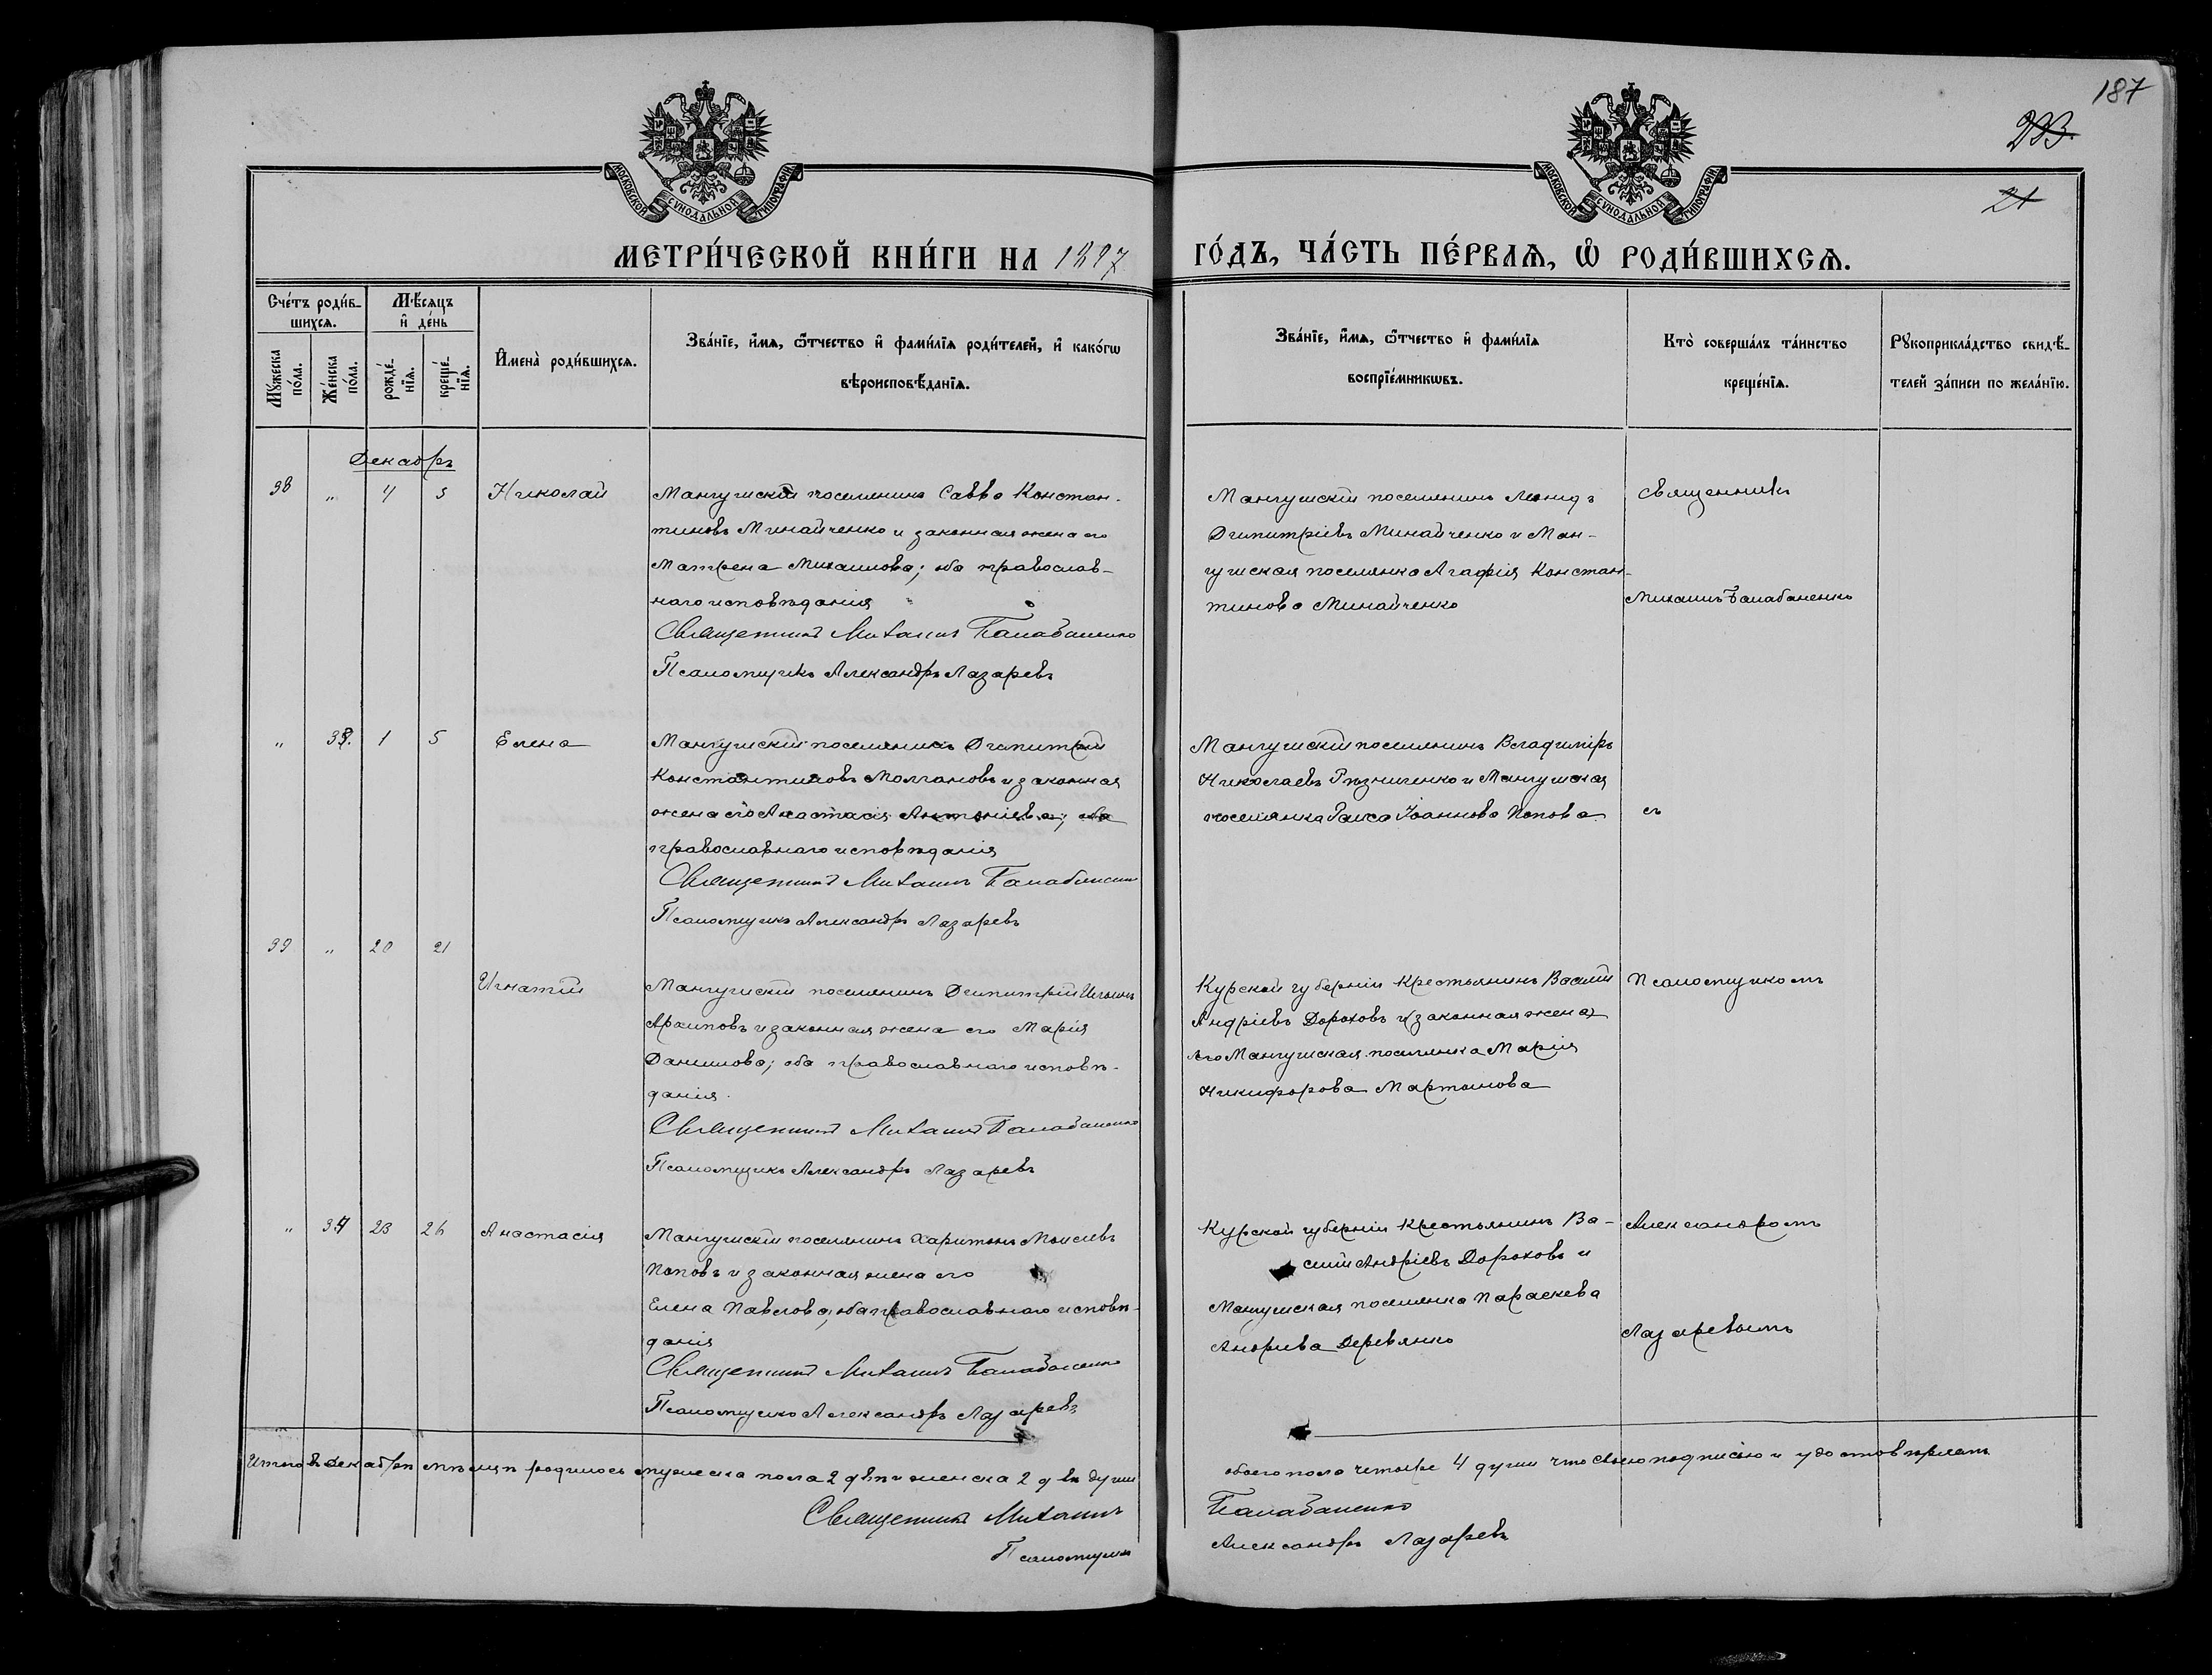 187
233
21
МОСКОВСКОЙ СѴНОДАЛЬНОЙ ТИПОГРАФІИ
МОСКОВСКОЙ СѴНОДАЛЬНОЙ ТИПОГРАФІИ
МЕТРИ́ЧЕСКОЙ КНИ́ГИ НА 1897 ГО́ДЪ, ЧА́СТЬ ПЕ́РВАѦ, Ѽ РОДИ́ВШИХСѦ.
Сче́тъ роди́в-
шихсѧ.
Мꙋ́жеска
по́ла.
Же́нска
по́ла.
Мѣ́сѧцъ
и҆ де́нь
рожде́-
нїѧ.
креще́-
нїѧ.
И҆мена̀ роди́вшихсѧ.
Зва́нїе, и҆́мѧ, ѻ҆́тчество и҆ фами́лїѧ роди́телей, и҆ како́гѡ
вѣроисповѣ́данїѧ.
Зва́нїе, и҆́мѧ, ѻ҆́тчество и҆ фами́лїѧ
воспрїе́мникѡвъ.
Кто̀ соверша́лъ та́инство
креще́нїѧ.
Рꙋкоприкла́дство свидѣ́-
телей за́писи по жела́нїю.
Декабрь
38 " 4 5 Николай
Мангушскій поселянинъ Савва Констан-
тиновъ Минайченко и законная жена его
Матрена Михаилова; оба православ-
наго исповѣданія
Священникъ Михаилъ Балабаненко
Псаломщикъ Александръ Лазаревъ
Мангушскій поселянинъ Леонидъ
Димитріевъ Минайченко и Ман-
гушская поселянка Агафія Констан-
тинова Минайченко
Священникъ
Михаилъ Балабаненко
" 33. 1 5 Елена
Мангушскій поселянинъ Димитрій
Константиновъ Молчановъ и законная
жена его Анастасія Антоніева; оба
православнаго исповѣданія
Священникъ Михаилъ Балабаненко
Псаломщикъ Александръ Лазаревъ
Мангушскій поселянинъ Владиміръ
Николаевъ Рѣзниченко и Мангушская
поселянка Раиса Іоаннова Попова
съ
39 " 20 21
Игнатій
Мангушскій поселянинъ Димитрій
Архиповъ и законная жена его Марія
Данилова; оба православнаго исповѣ-
данія.
Священникъ Михаилъ Балабаненко
Псаломщикъ Александръ Лазаревъ
Курской губерніи Крестьянинъ Василій
Андріевъ Дороховъ и (законная жена)
его Мангушская поселянка Марія
Никифорова Мартынова
Псаломщикомъ
" 34 23 26 Анастасія
Мангушскій поселянинъ Харитонъ Моисеевъ
Поповъ и законная жена его
Елена Павлова; оба православнаго исповѣ-
данія
Священникъ Михаилъ Балабаненко
Псаломщикъ Александръ Лазаревъ
Курской губерніи Крестьянинъ Ва-
силій Андріевъ Дороховъ и
Мангушская поселянка Параскева
Андріева Деревянко
Александромъ
Лазаревымъ
Итого въ Декабрѣ мѣсяцѣ родилось мужеска пола 2 двѣ и женска 2 двѣ души
обоего пола четыре 4 души что своею подписью и удостовѣряемъ
Священникъ Михаилъ Балабаненко
Псаломщикъ Александръ Лазаревъ